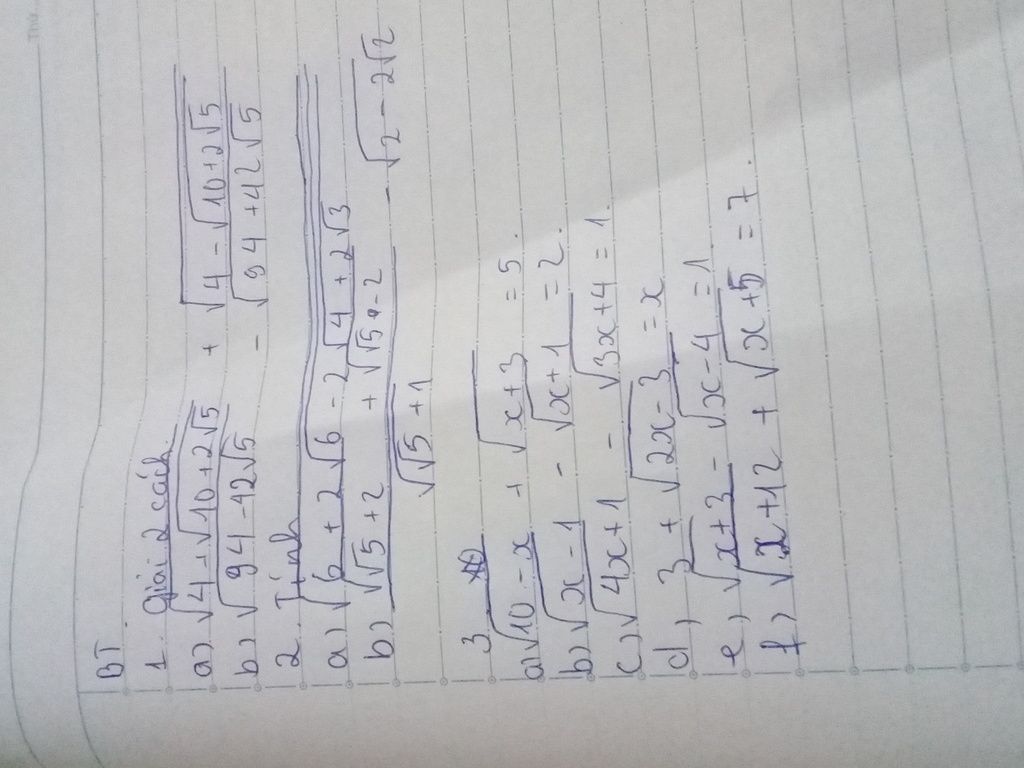 BT
1. Giải 2 cách
a) √(4+√(10+2√5)) + √(4-√(10+2√5))
b) √(94-42√5) - √(94+42√5)
2. Tính
a) √(6+2√(6-2√(4+2√3)))
b) (√(√5+2) + √(√5-2))/√(√5+1) - √(2-2√2)
3.
a) √(10-x) + √(x+3) = 5.
b) √(x-1) - √(x+1) = 2.
c) √(4x+1) - √(3x+4) = 1.
d) 3 + √(2x-3) = x
e) √(x+3) - √(x-4) = 1
f) √(x+12) + √(x+5) = 7.